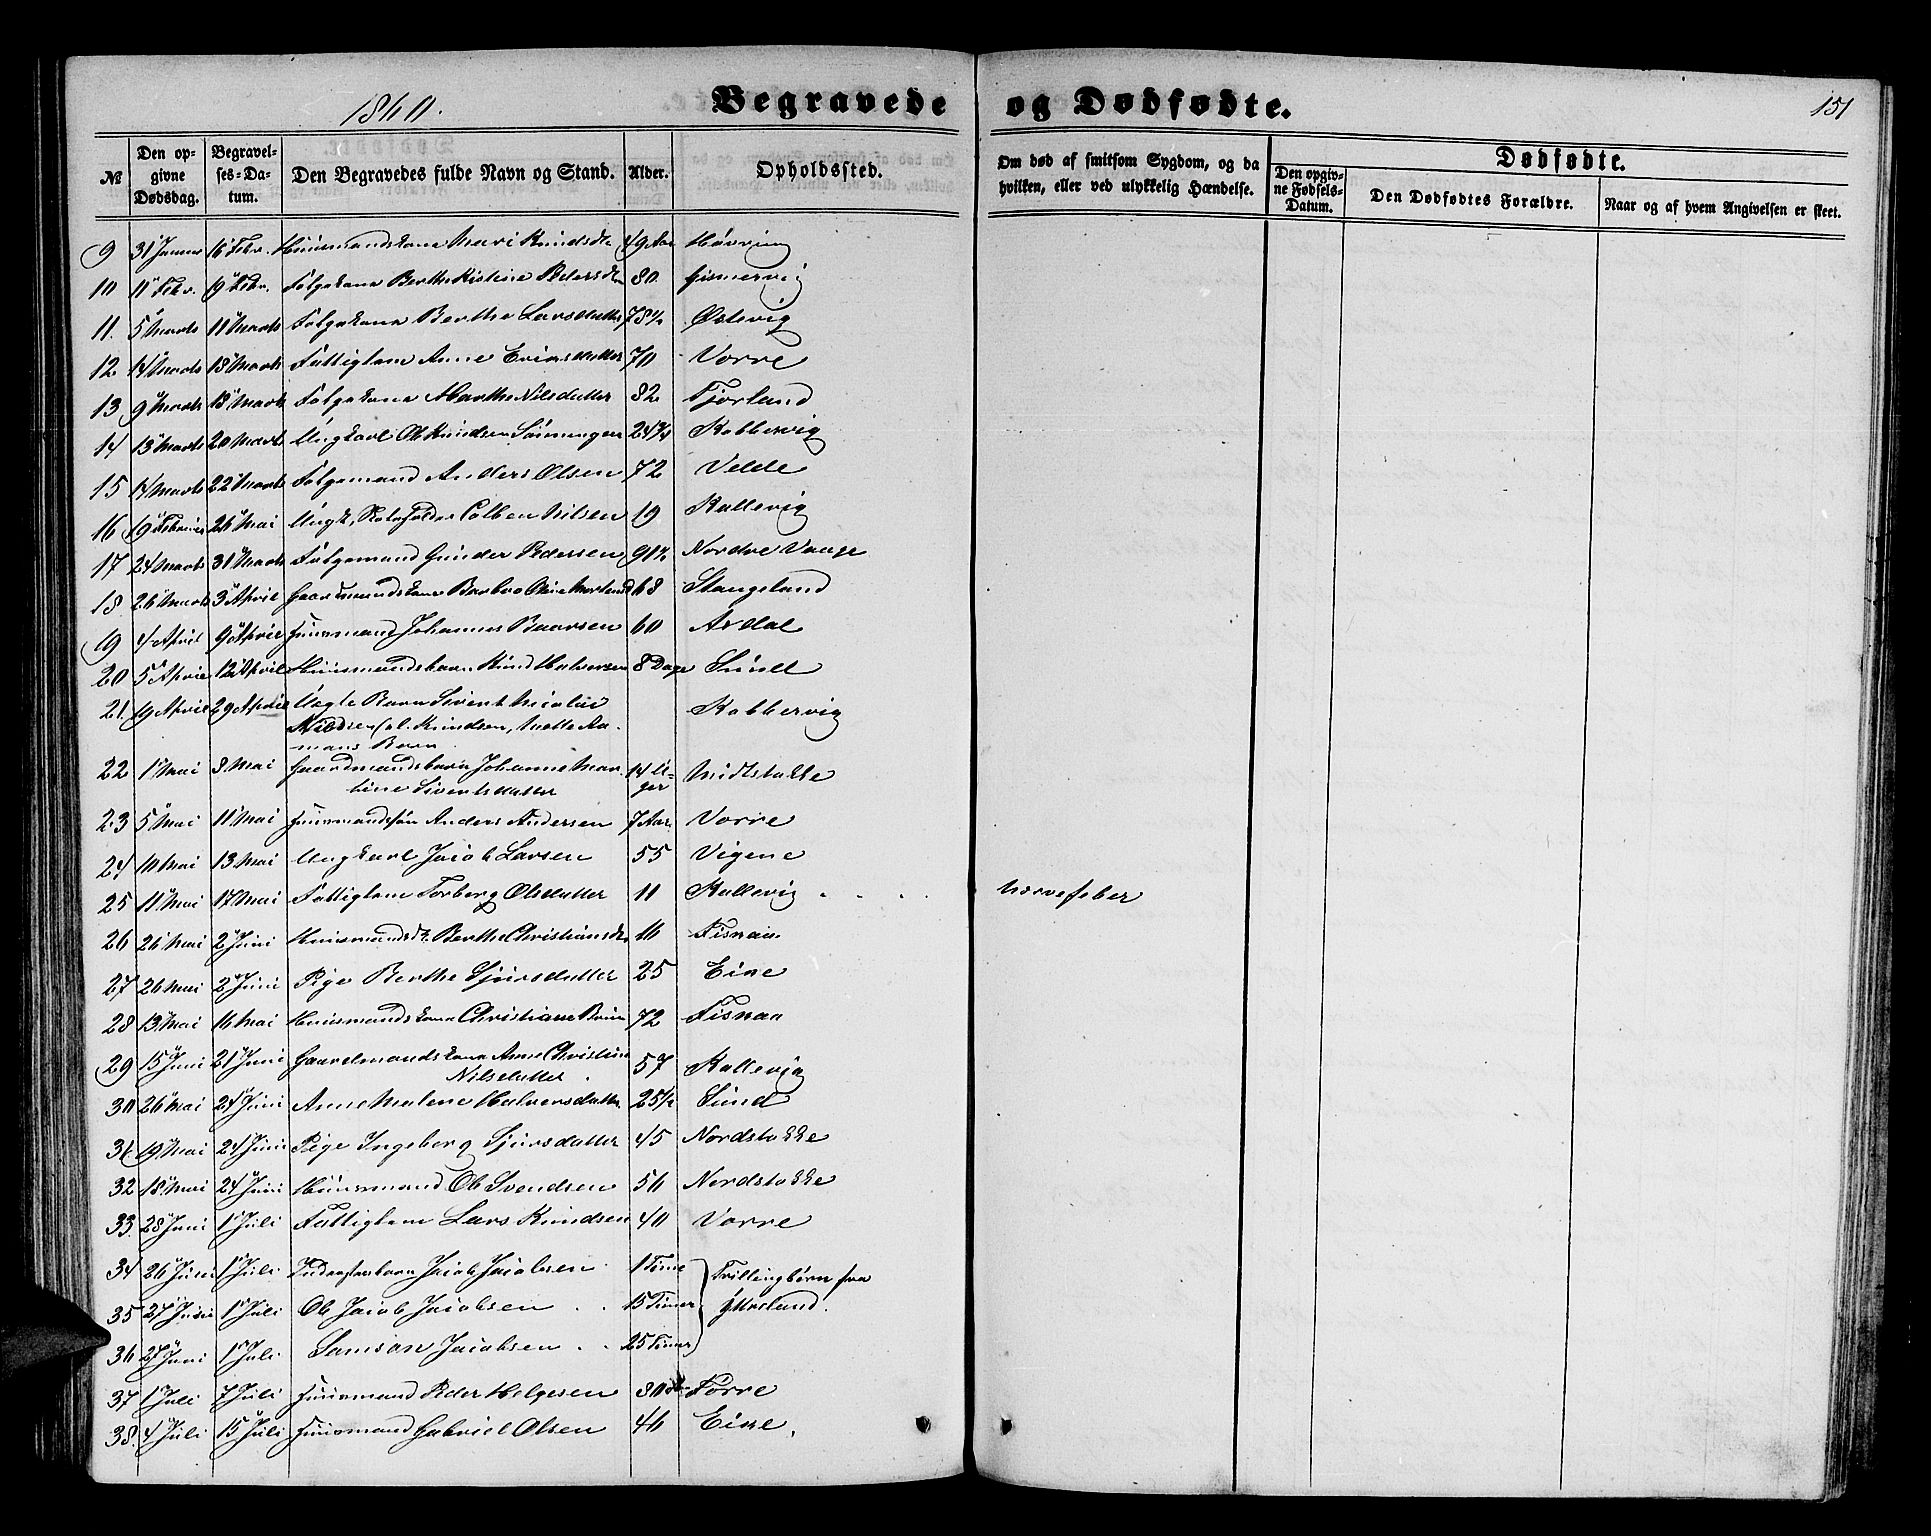 1860.
Begravede og Dødfødte.
151
№
Den opgivne Dødsdag.
Begravelses-Datum.
Den Begravedes fulde Navn og Stand.
Alder.
Opholdssted.
Om død af smitsom Sygdom, og da hvilken, eller ved ulykkelig Hændelse.
Dødfødte.
Den opgivne Fødsels-Datum.
Den Dødfødtes Forældre.
Naar og af hvem Angivelsen er skeet.
9 31 Januar 16 Febr. Huusmandskone Mari Knudsdtr 49 Aar Hövring
10 11 Febr. 19 Febr. Folgekone Berthe Kistine Pedersdtr 80 Gismervig
11. 5 Marts 11 Marts Folgekone Berthe Larsdatter 78½ Østevig
12 14 Marts 18 Marts Fattiglem Anne Ericsdatter 70 Vorre
13 9 Marts 13 Marts Folgekone Marthe Nilsdatter 82 Fjorland
14 13 Marts 20 Marts Ungkarl Ole Knudsen 24¾ Kobbervig
15 14 Marts 22 Marts Folgemand Anders Olsen 72 Velde
16 19 Februar 26 Mai Ungk. Colben Nilsen 19 Kallevig
17 24 Marts 31 Marts Folgemand Gunder Pedersen 91½ Nordre Vaage
18. 26 Marts 3 April Gaardmandskone Barbro 68 Stangeland
19 4 April 9 April Huusmand Johannes Baarsen 60 Avdal
20 5 April 12 April Huusmandsbarn Knud Halvorsen 8 Dage Sund
21. 19 April 29 April Uægte Barn Sivert Nicolai Kobbervig
Nildsen Knudsen, Mette
Barn
22 1 Mai 3 Mai Gaardmandsbarn Johanne Mar- 14 U- Midtstokke
tine Sivertsdatter ger
23 5 Mai 11 Mai Huusmandsön Anders Andersen 7 Aar. Vorre
24 10 Mai 13 Mai Ungkarl Jacob Larsen 55 Vigene
25 11 Mai 17 Mai Fattiglem Torberg Olsdatter 11 Kallevig . . . Nervefeber
26 26 Mai 2 Juni Huusmandsd. Berthe Christiansdtr 16 Fisnaa
27 26 Mai 2 Juni Pige Berthe Sjursdatter 25 Eike
28 13 Mai 16 Mai Huusmandskone Christiane 72 Fisnaa
29 15 Juni 21 Juni Gaardmandskone Anne Christine 57 Kallevig
Nilsdatter
30 26 Mai 24 Juni Anne Malene Halvorsdatter 25½ Sund
31 19 Mai 24 Juni Pige Ingeborg Sjursdatter 45 Nordstokke
32 18 Mai 24 Juni Huusmand Ole Svendsen 56 Nordstokke
33. 28 Juni 1 Juli Fattiglem Lars Knudsen 40 Vorre
34 26 Juni 1 Juli Jacob Jacobsen 1 Time Trillingbörn fra
35 27 Juni 1 Juli Ole Jacob Jacobsen . . 15 Timer Ytterland.
36 27 Juni 1 Juli Samson Jacobsen . . 25 Timer
37 1 Juli 7 Juli Huusmand Peder Helgesen 80 Førre
38. 4 Juli 15 Juli Huusmand Gabriel Olsen 46 Eike.